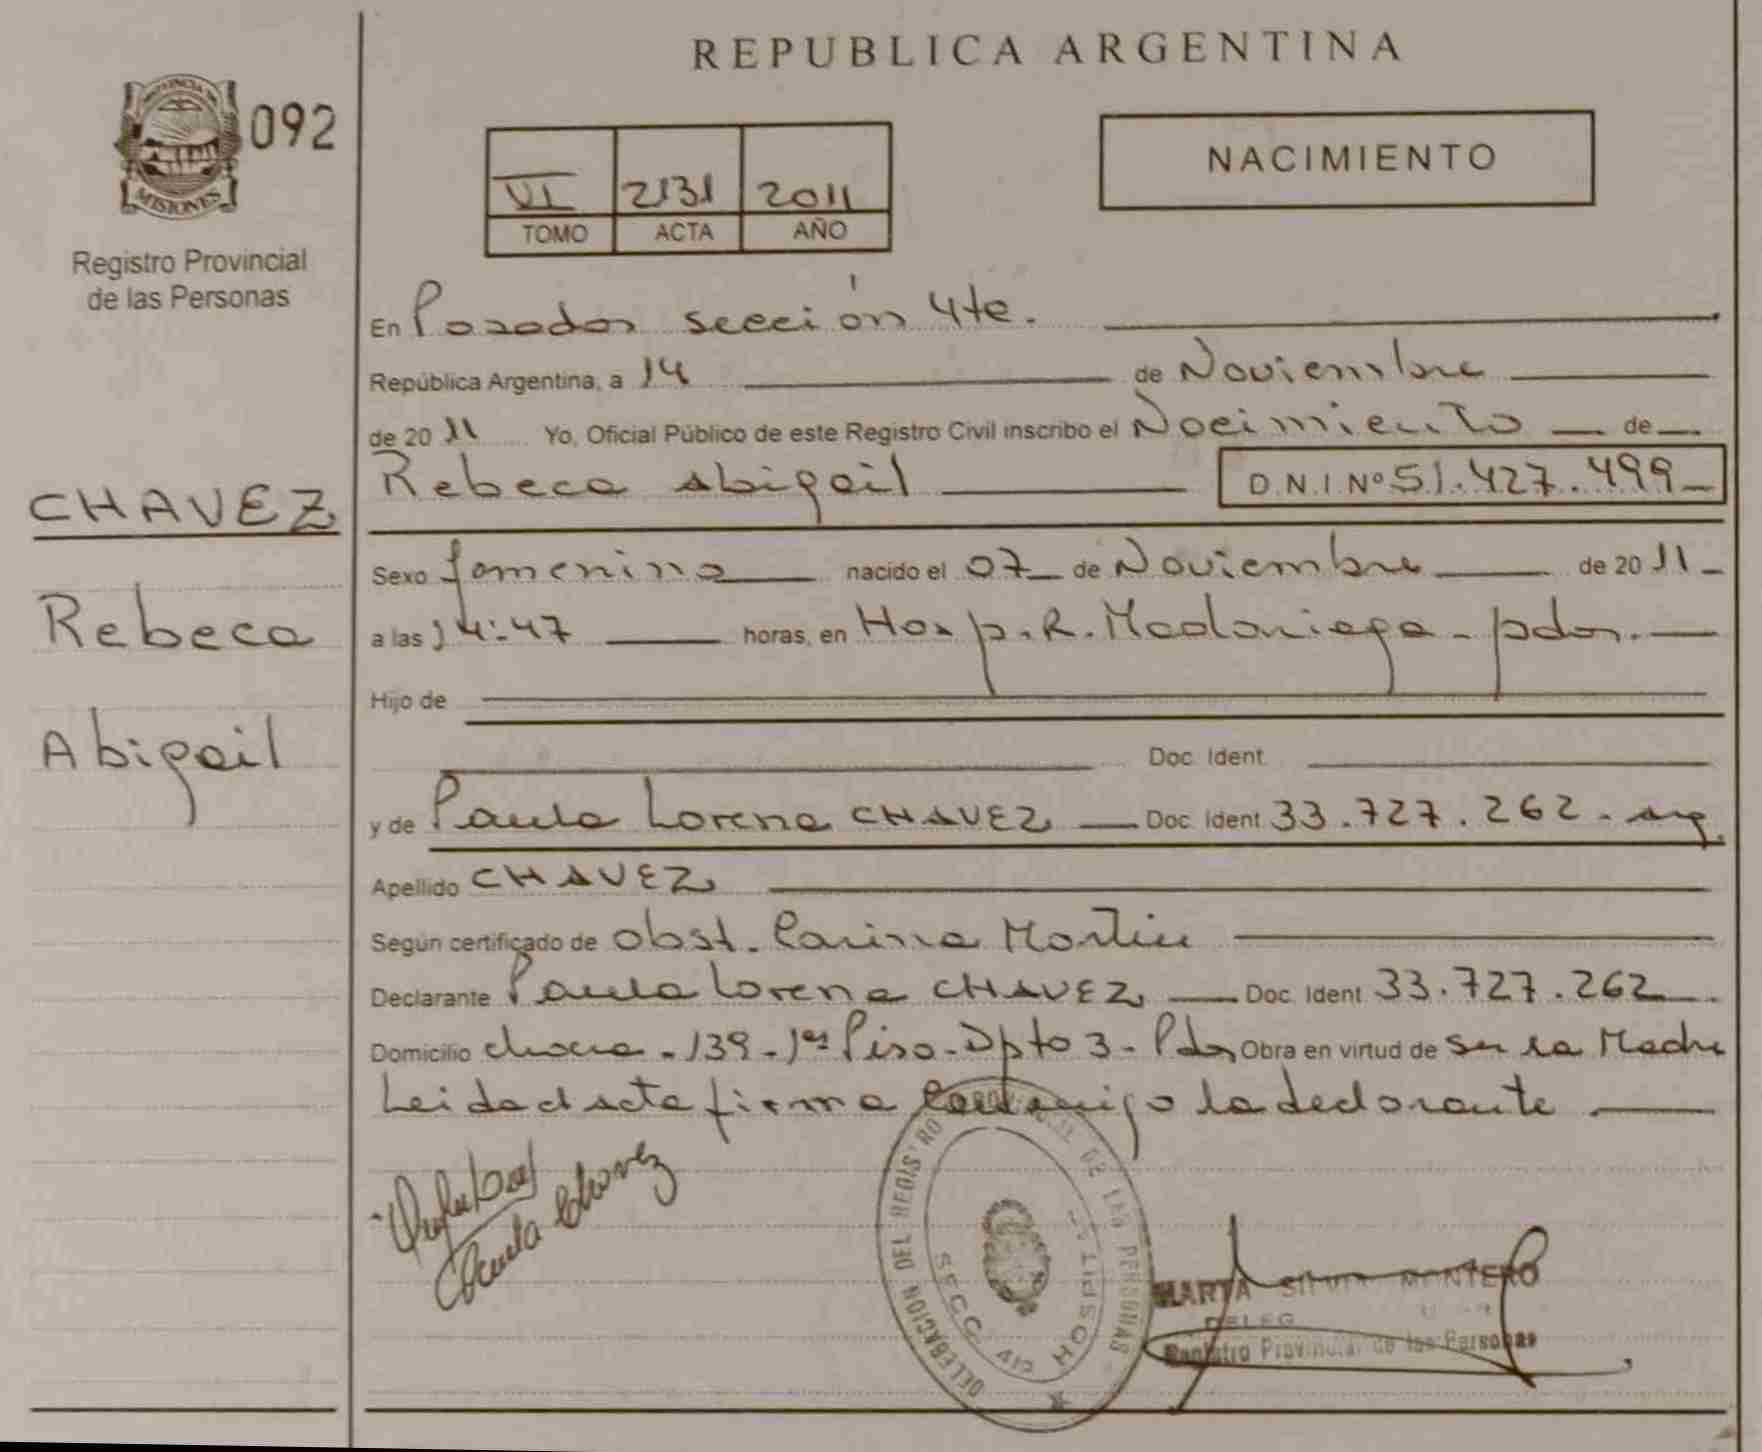 REPUBLICA ARGENTINA
PROVINCIA DE
MISIONES
092
Registro Provincial
de las Personas
NACIMIENTO
VI 2131 2011
TOMO ACTA AÑO
CHAVEZ
Rebeca
Abigail
En Posadas sección 4te.
República Argentina, a 14 de Noviembre
de 2011 Yo, Oficial Público de este Registro Civil inscribo el Nacimiento de
Rebeca Abigail D.N.I Nº 51.427.499
Sexo femenino nacido el 07 de Noviembre de 2011
a las 14:47 horas, en Hosp. R. Madariaga - pdas.
Hijo de
Doc. Ident.
y de Paula Lorena CHAVEZ Doc. Ident. 33.727.262. arg.
Apellido CHAVEZ
Según certificado de obst. Carina Martin
Declarante Paula Lorena CHAVEZ Doc. Ident 33.727.262
Domicilio - 139 - 1er Piso - Dpto 3 - Pdas Obra en virtud de ser la Madre
Leida el acta firma conmigo la declarante
Paula Chavez
DELEGACION DEL REGISTRO DE LAS PERSONAS
SECC. HOSPITAL
MARTA SILVIA MONTERO
DELEG
Registro Provincial de las Personas